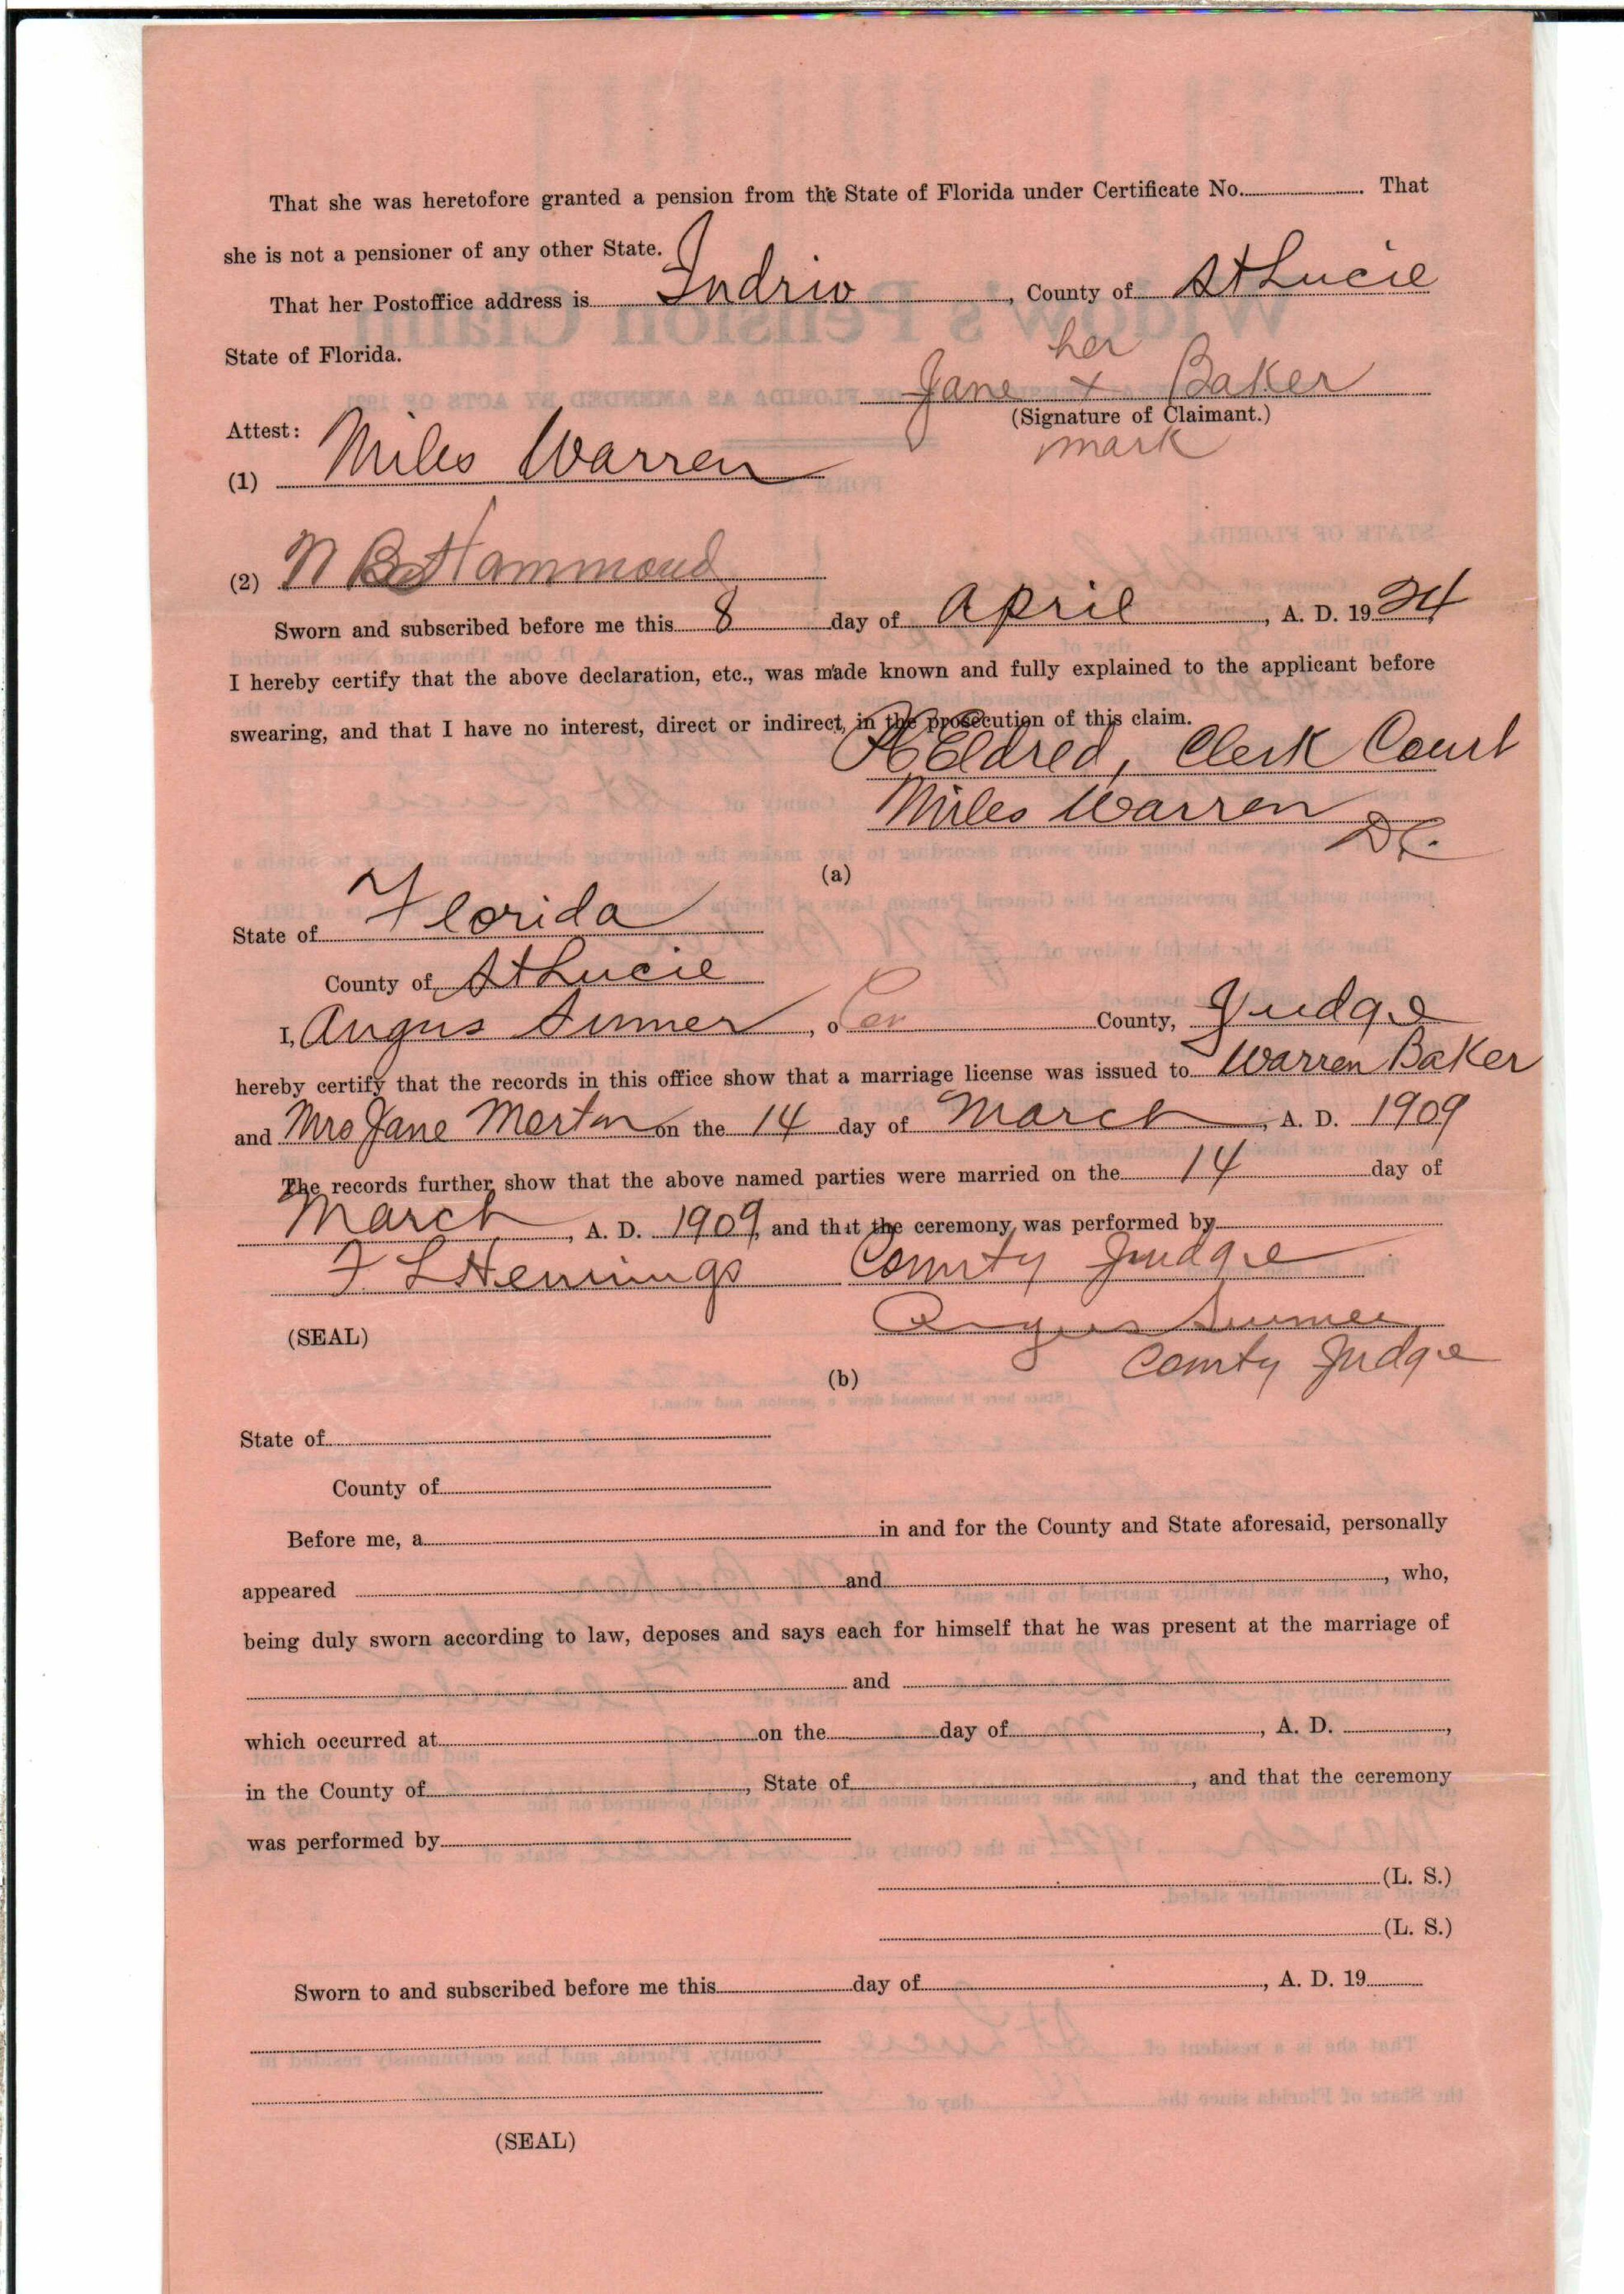 That she was heretofore granted a pension from the State of Florida under Certificate No. That
she is not a pensioner of any other State.
That her Postoffice address is Indrio, County of St Lucie
State of Florida.
her
Jane x Baker
(Signature of Claimant.)
mark
Attest:
(1) Miles Warren
(2) N B Hammond
Sworn and subscribed before me this 8 day of April, A. D. 1924
I hereby certify that the above declaration, etc., was made known and fully explained to the applicant before
swearing, and that I have no interest, direct or indirect, in the prosecution of this claim.
Eldred, Clerk Court
Miles Warren
D C.
(a)
State of Florida
County of St Lucie
I, Angus Sumner, County, Judge
hereby certify that the records in this office show that a marriage license was issued to Warren Baker
and Mrs Jane on the 14 day of March, A. D. 1909
The records further show that the above named parties were married on the 14 day of
March, A. D. 1909, and that the ceremony was performed by
F L Hemmings County Judge
(SEAL)
Angus Sumner
County Judge
(b)
State of
County of
Before me, a in and for the County and State aforesaid, personally
appeared and, who,
being duly sworn according to law, deposes and says each for himself that he was present at the marriage of
and
which occurred at on the day of, A. D.,
in the County of, State of, and that the ceremony
was performed by
(L. S.)
(L. S.)
Sworn to and subscribed before me this day of, A. D. 19
(SEAL)